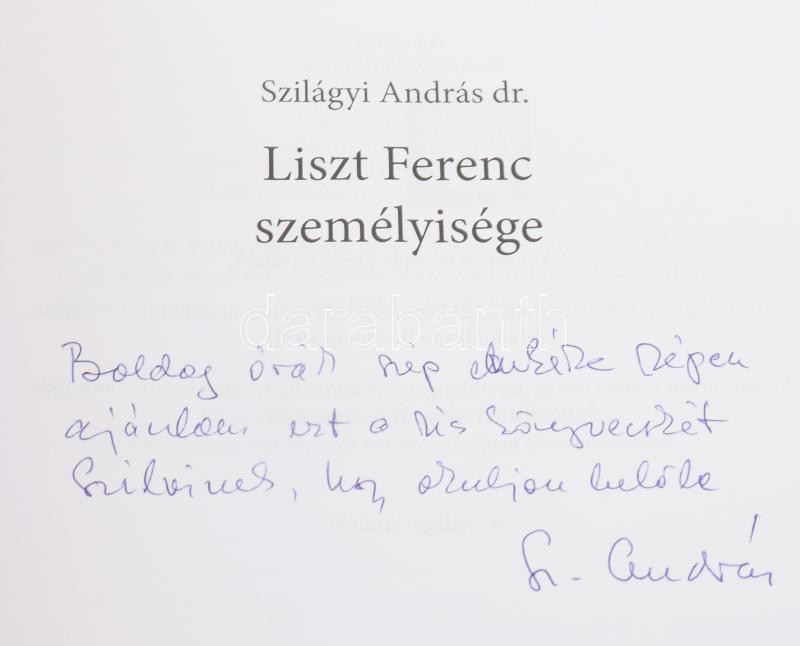 Szilágyi András dr.
Liszt Ferenc
személyisége
darabanth
Boldog órák szép emléke képen
ajánlom ezt a kis könyvecskét
Szilvinek, hogy okuljon belőle
Sz. András
© Szilágyi András